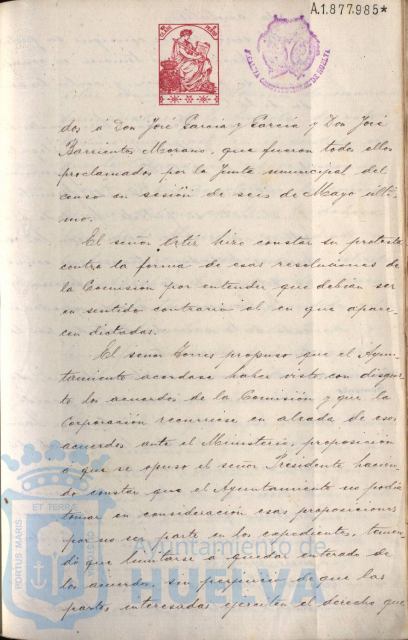 A.1.877.985*
ALCALDIA CONSTITUCIONAL DE HUELVA
dos á Don José Garcia y Garcia y Don José
Barrientos Morano, que fueron todos ellos
proclamados por la Junta municipal del
censo en sesión de seis de Mayo últi-
mo.
El señor Ortiz hizo constar su protesta
contra la forma de esas resoluciones de
la Comisión por entender que debían ser
en sentido contrario al en que apare-
cen dictadas.
El señor Torres propuso que el Ayun-
tamiento acordase haber visto con disgus-
to los acuerdos de la Comisión y que la
Corporación recurriese en alzada de esos
acuerdos ante el Ministerio, proposición
a que se opuso el señor Presidente hacien-
do constar que el Ayuntamiento no podía
tomar en consideración esas proposiciones
por no ser parte en los expedientes, tenien-
do que limitarse a quedar enterado de
los acuerdos, sin perjuicio de que las
partes interesadas ejerciten el derecho que
PORTUS MARIS
ET TERRE
CUSTODIO
Ayuntamiento de
HUELVA